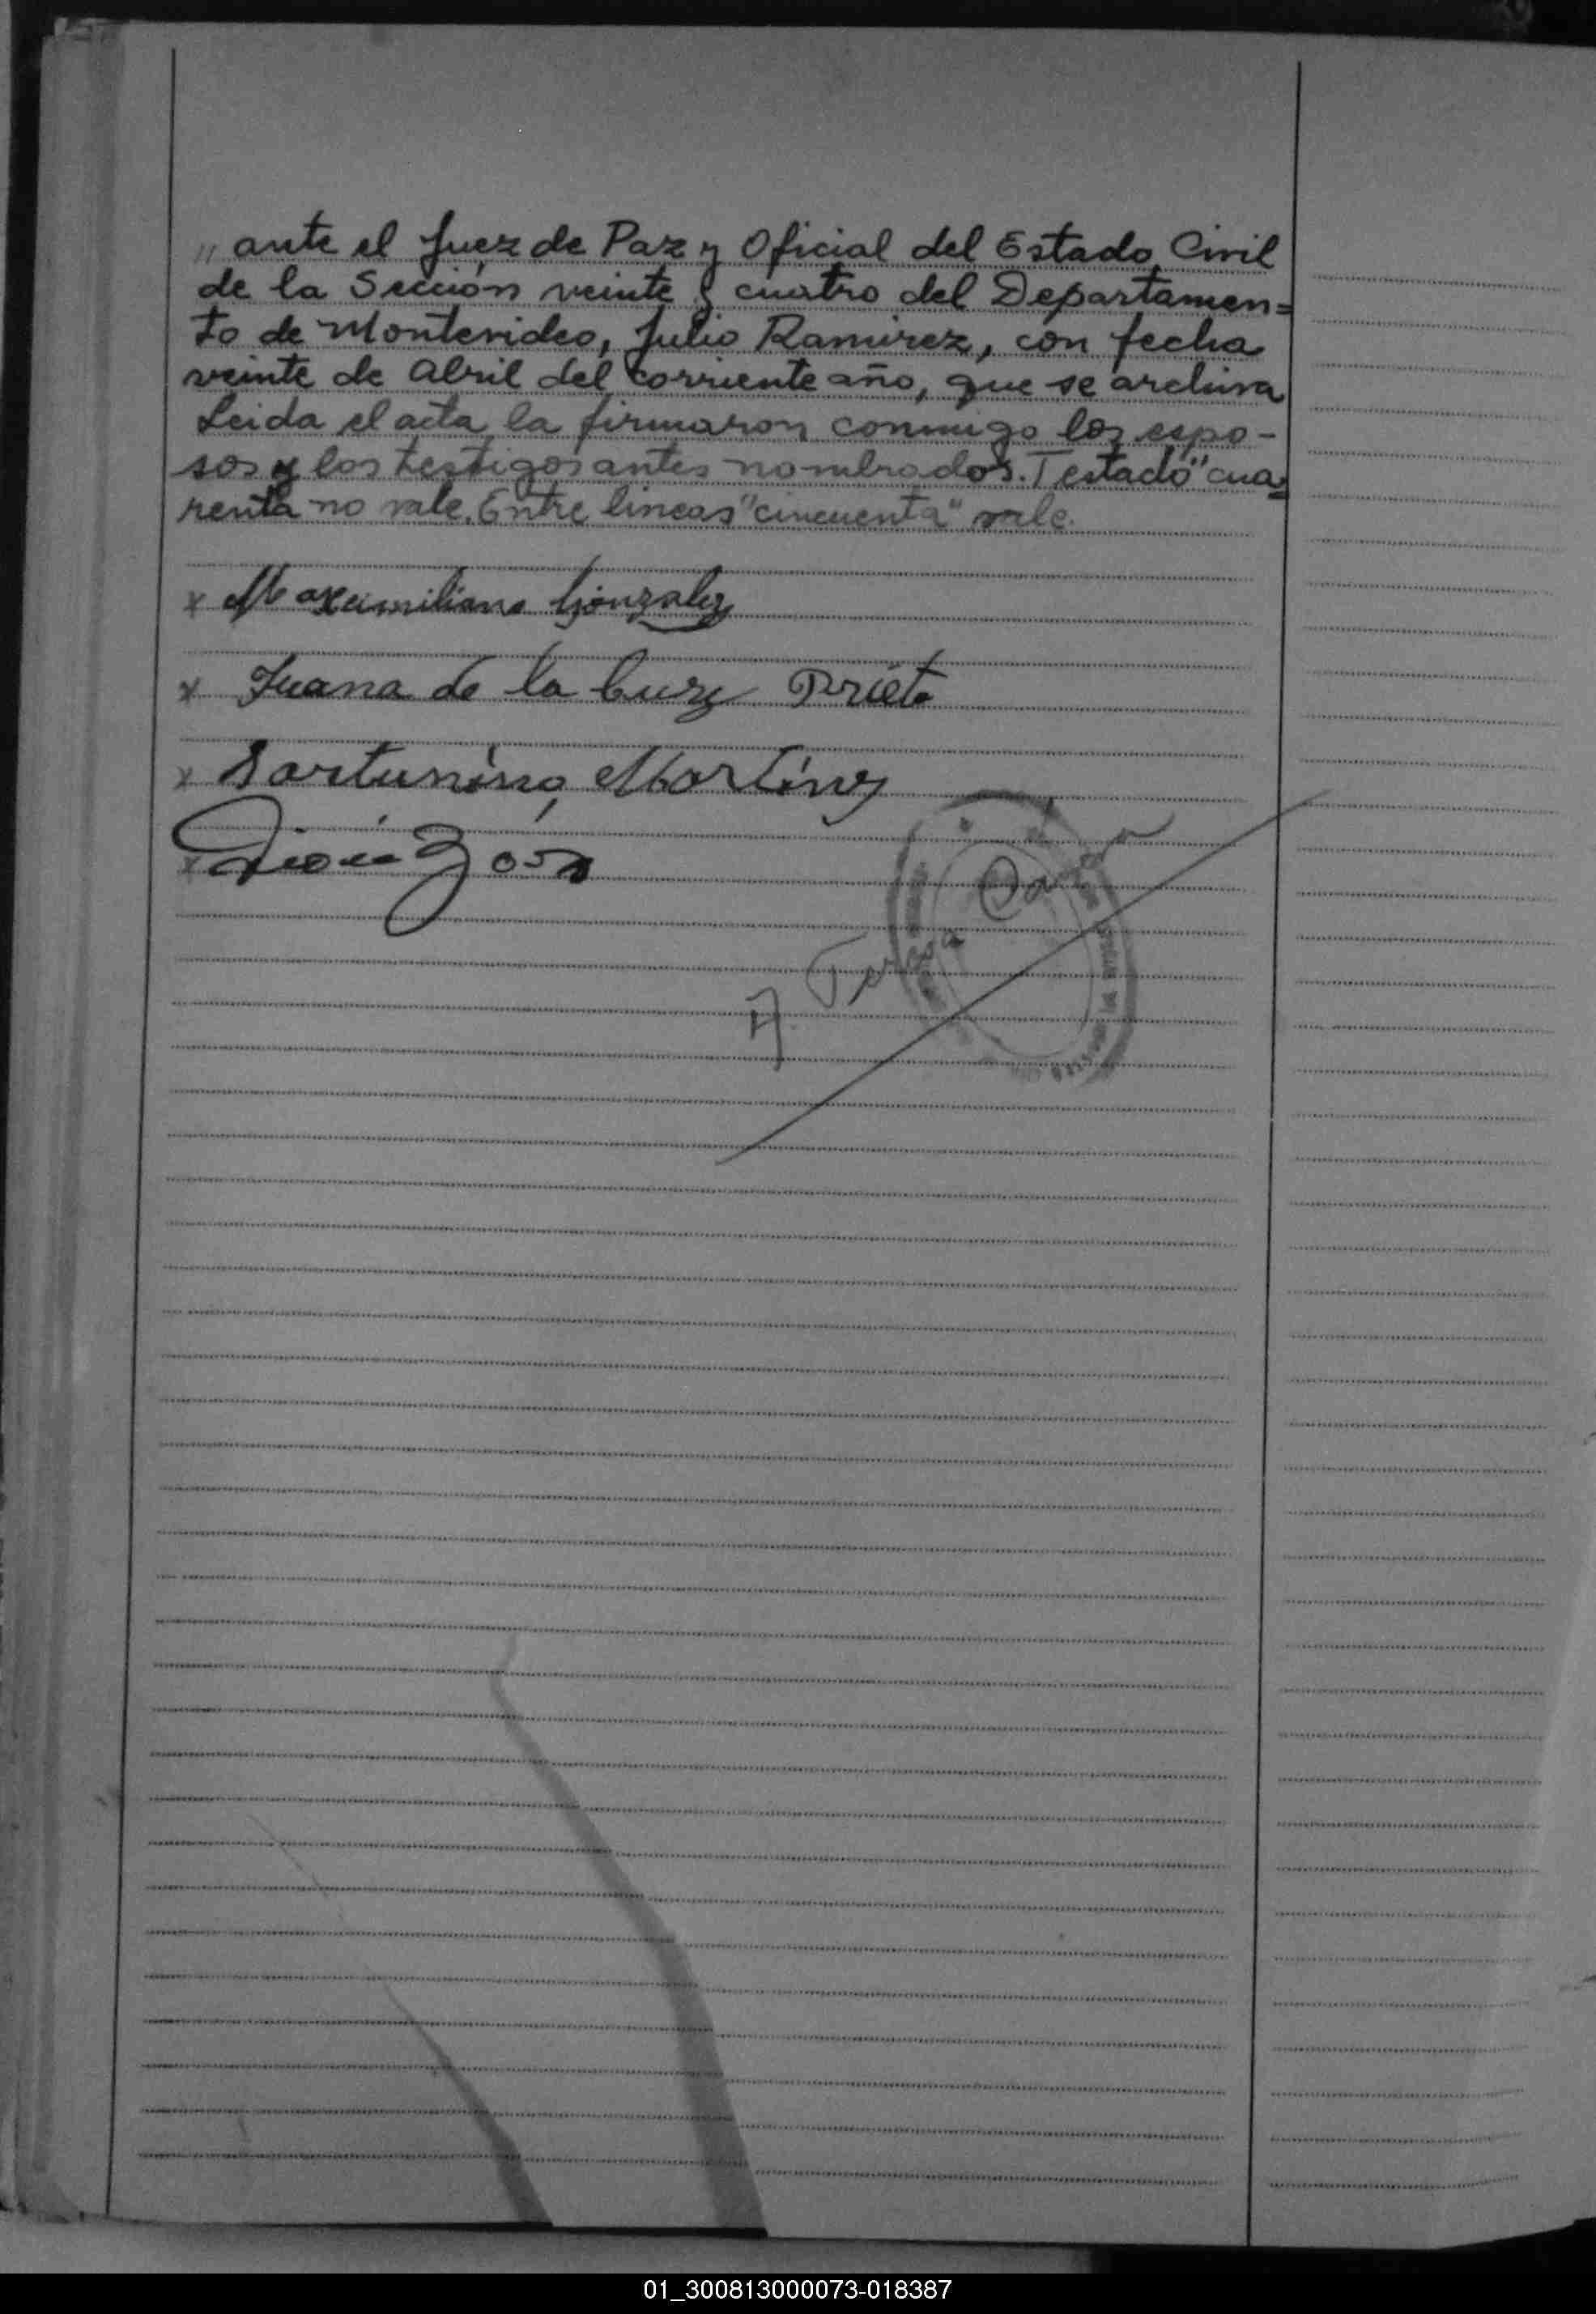 " ante el Juez de Paz y Oficial del Estado Civil
de la Sección veinte y cuatro del Departamen=
to de Montevideo, Julio Ramirez, con fecha
veinte de Abril del corriente año, que se archiva
Leida el acta la firmaron conmigo los espo-
sos y los testigos antes nombrados. Testado "cua=
renta no vale. Entre lineas "cincuenta" vale.
x Maxcimiliano Gonzalez
x Juana de la Cruz Prieto
x Sartunino Martinez
x
01_300813000073-018387